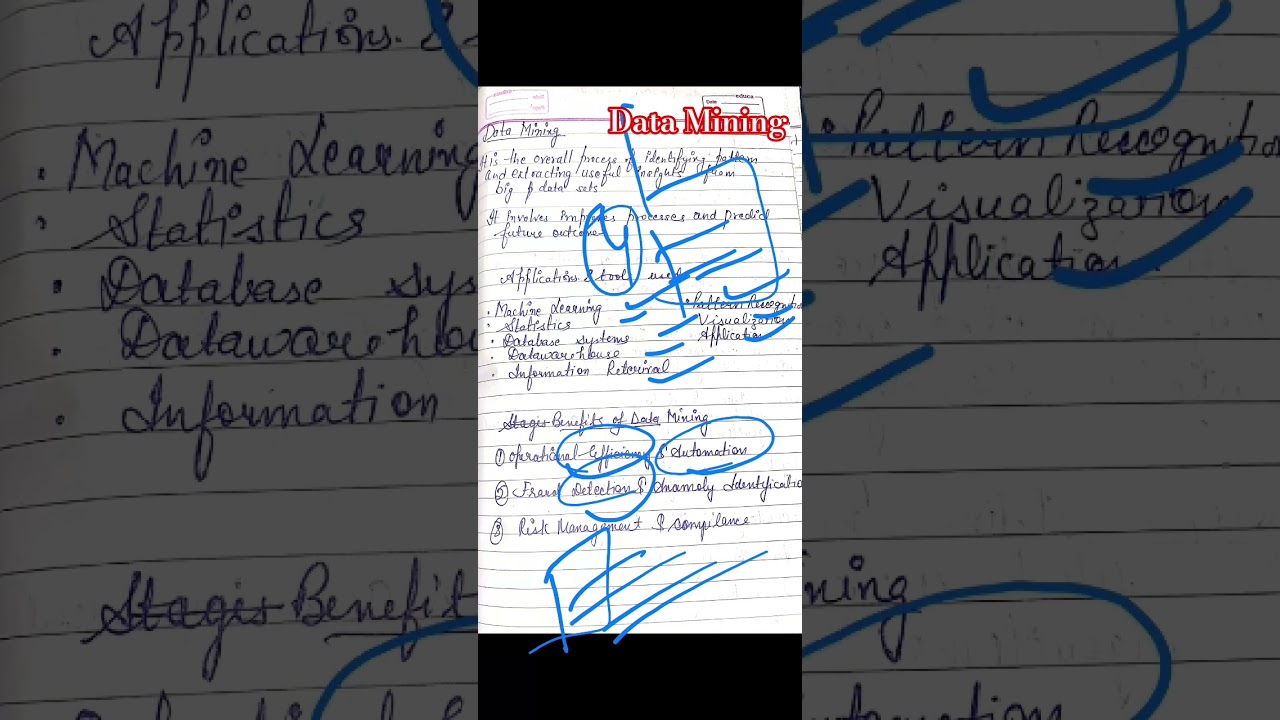 Data Mining
Data Mining
It is the overall process of identifying pattern
and extracting useful insights from
big data sets
It involves improves processes and predict
future outcome
Applications & tools used
. Machine Learning
. Pattern Recognition
. Statistics
Visualization
. Database systems
Application
. Datawarehouse
. Information Retrieval
Stages Benefits of Data Mining
① Operational Efficiency & Automation
② Fraud Detection & Anamoly Identificatio
③ Risk Management & Compilance
Applications. &
. Machine Learning
. Statistics
. Database sys
. Datawarehou
. Information
Stages Benefit
. Pattern Recognitio
Visualization
Application
ning
utomation